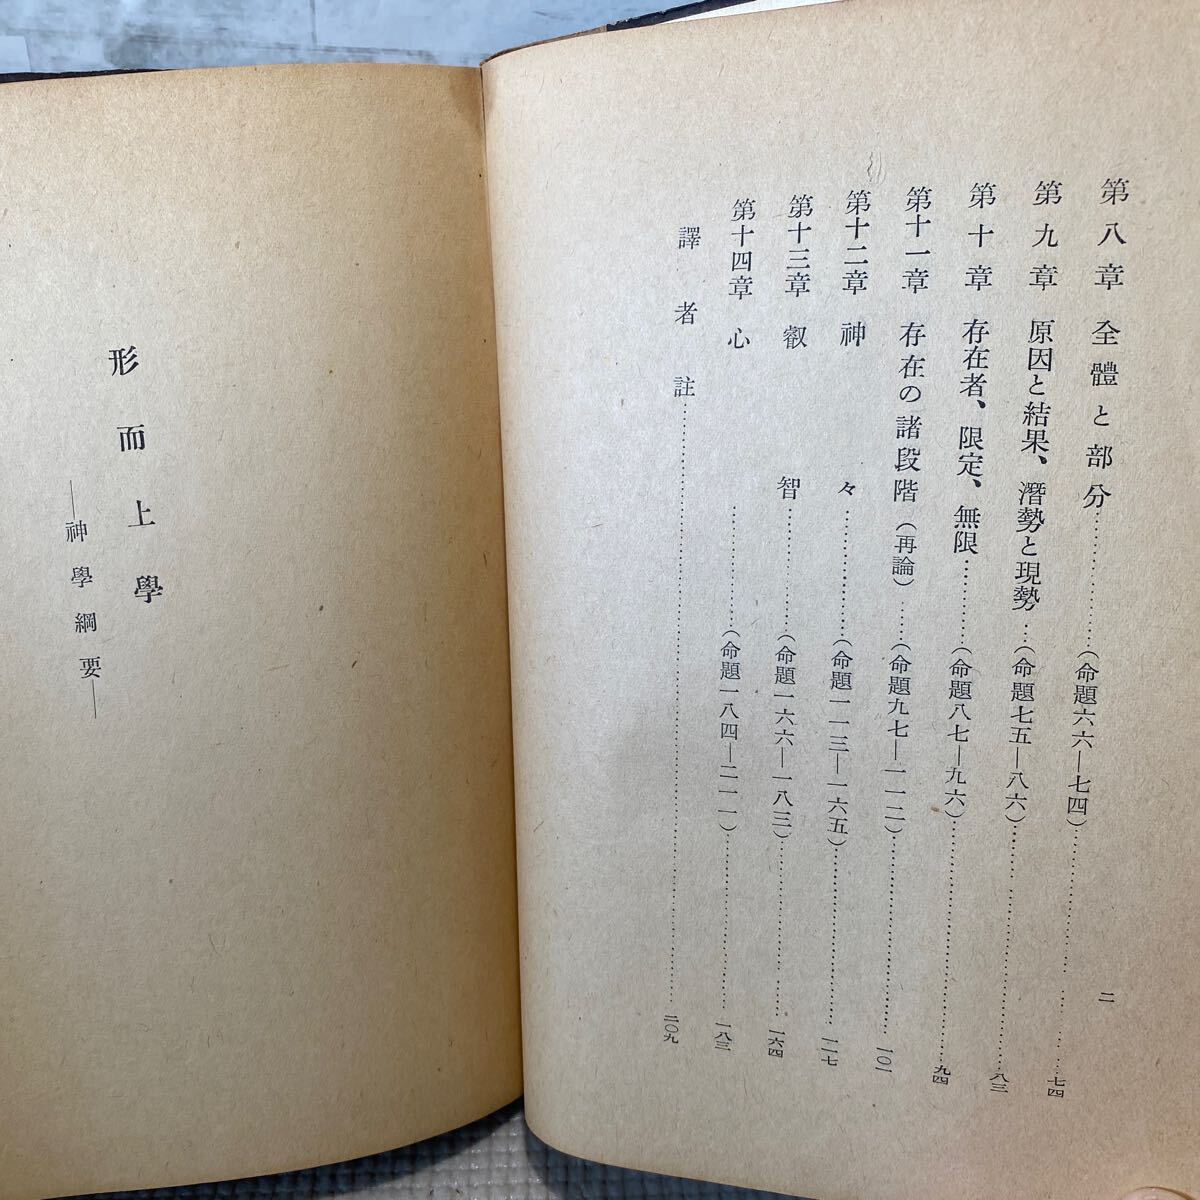 第八章 全體と部分……………(命題六六—七四)……………七四
第九章 原因と結果、潛勢と現勢…(命題七五—八六)……………八三
第十章 存在者、限定、無限…………(命題八七—九六)……………九四
第十一章 存在の諸段階(再論)……(命題九七—一一二)……………一〇一
第十二章 神々……………(命題一一三—一六五)……………一二七
第十三章 叡智……………(命題一六六—一八三)……………一六四
第十四章 心……………(命題一八四—二一一)……………一八三
譯者註……………二〇九
二
形而上學
—神學綱要—